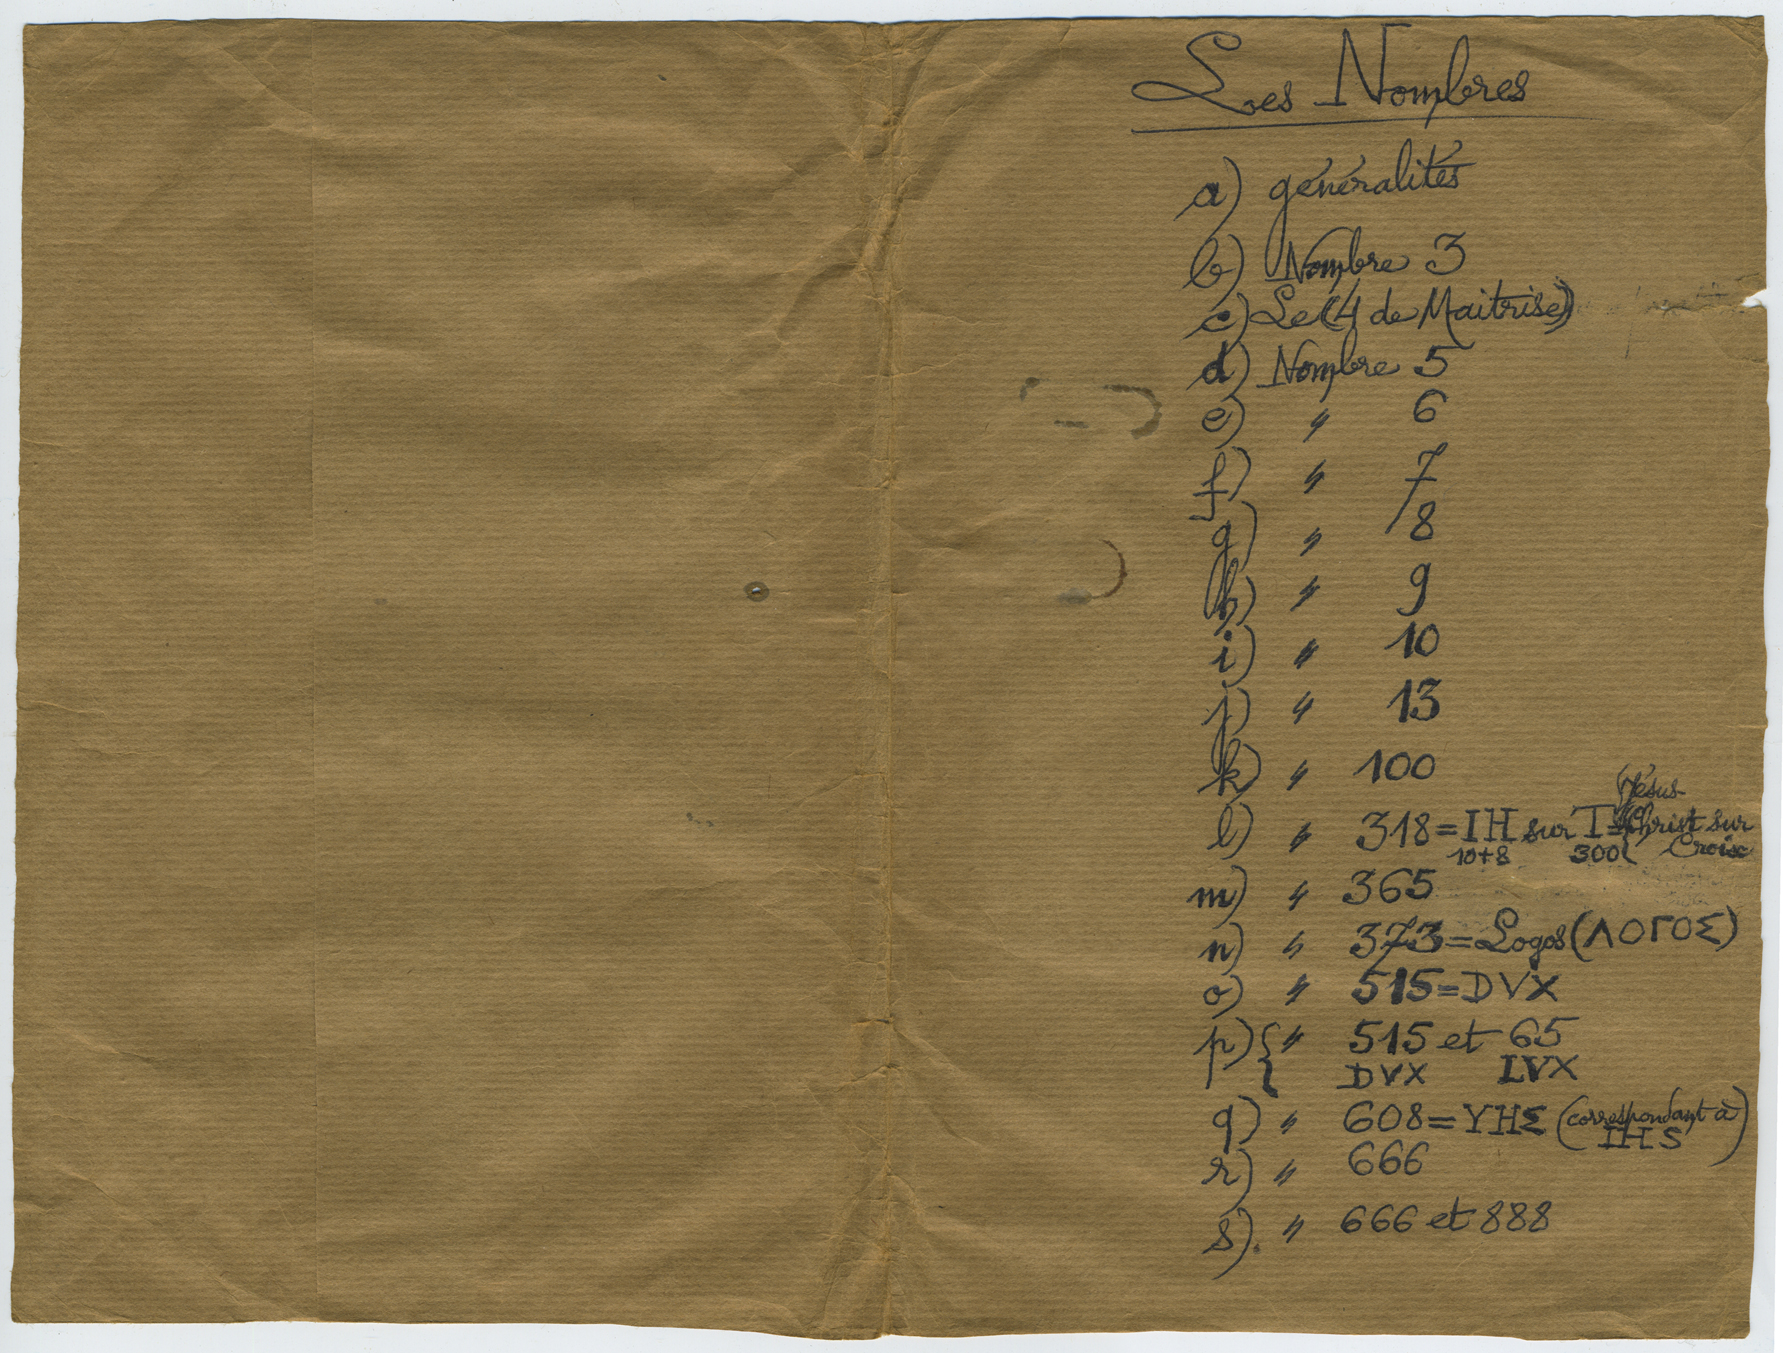 Les Nombres
a) généralités
b) Nombre 3
c) Le (4 de Maitrise)
d) Nombre 5
e) " 6
f) " 7
g) " 8
h) " 9
i) " 10
j) " 13
k) " 100
l) " 318 = IH sur T = (Jésus Christ sur Croix
10+8 300
m) " 365
n) " 373 = Logos (ΛΟΓΟΣ)
o) " 515 = DVX
p) { " 515 et 65
DVX LVX
q) " 608 = ΥΗΣ (correspondant à IHS)
r) " 666
s) " 666 et 888